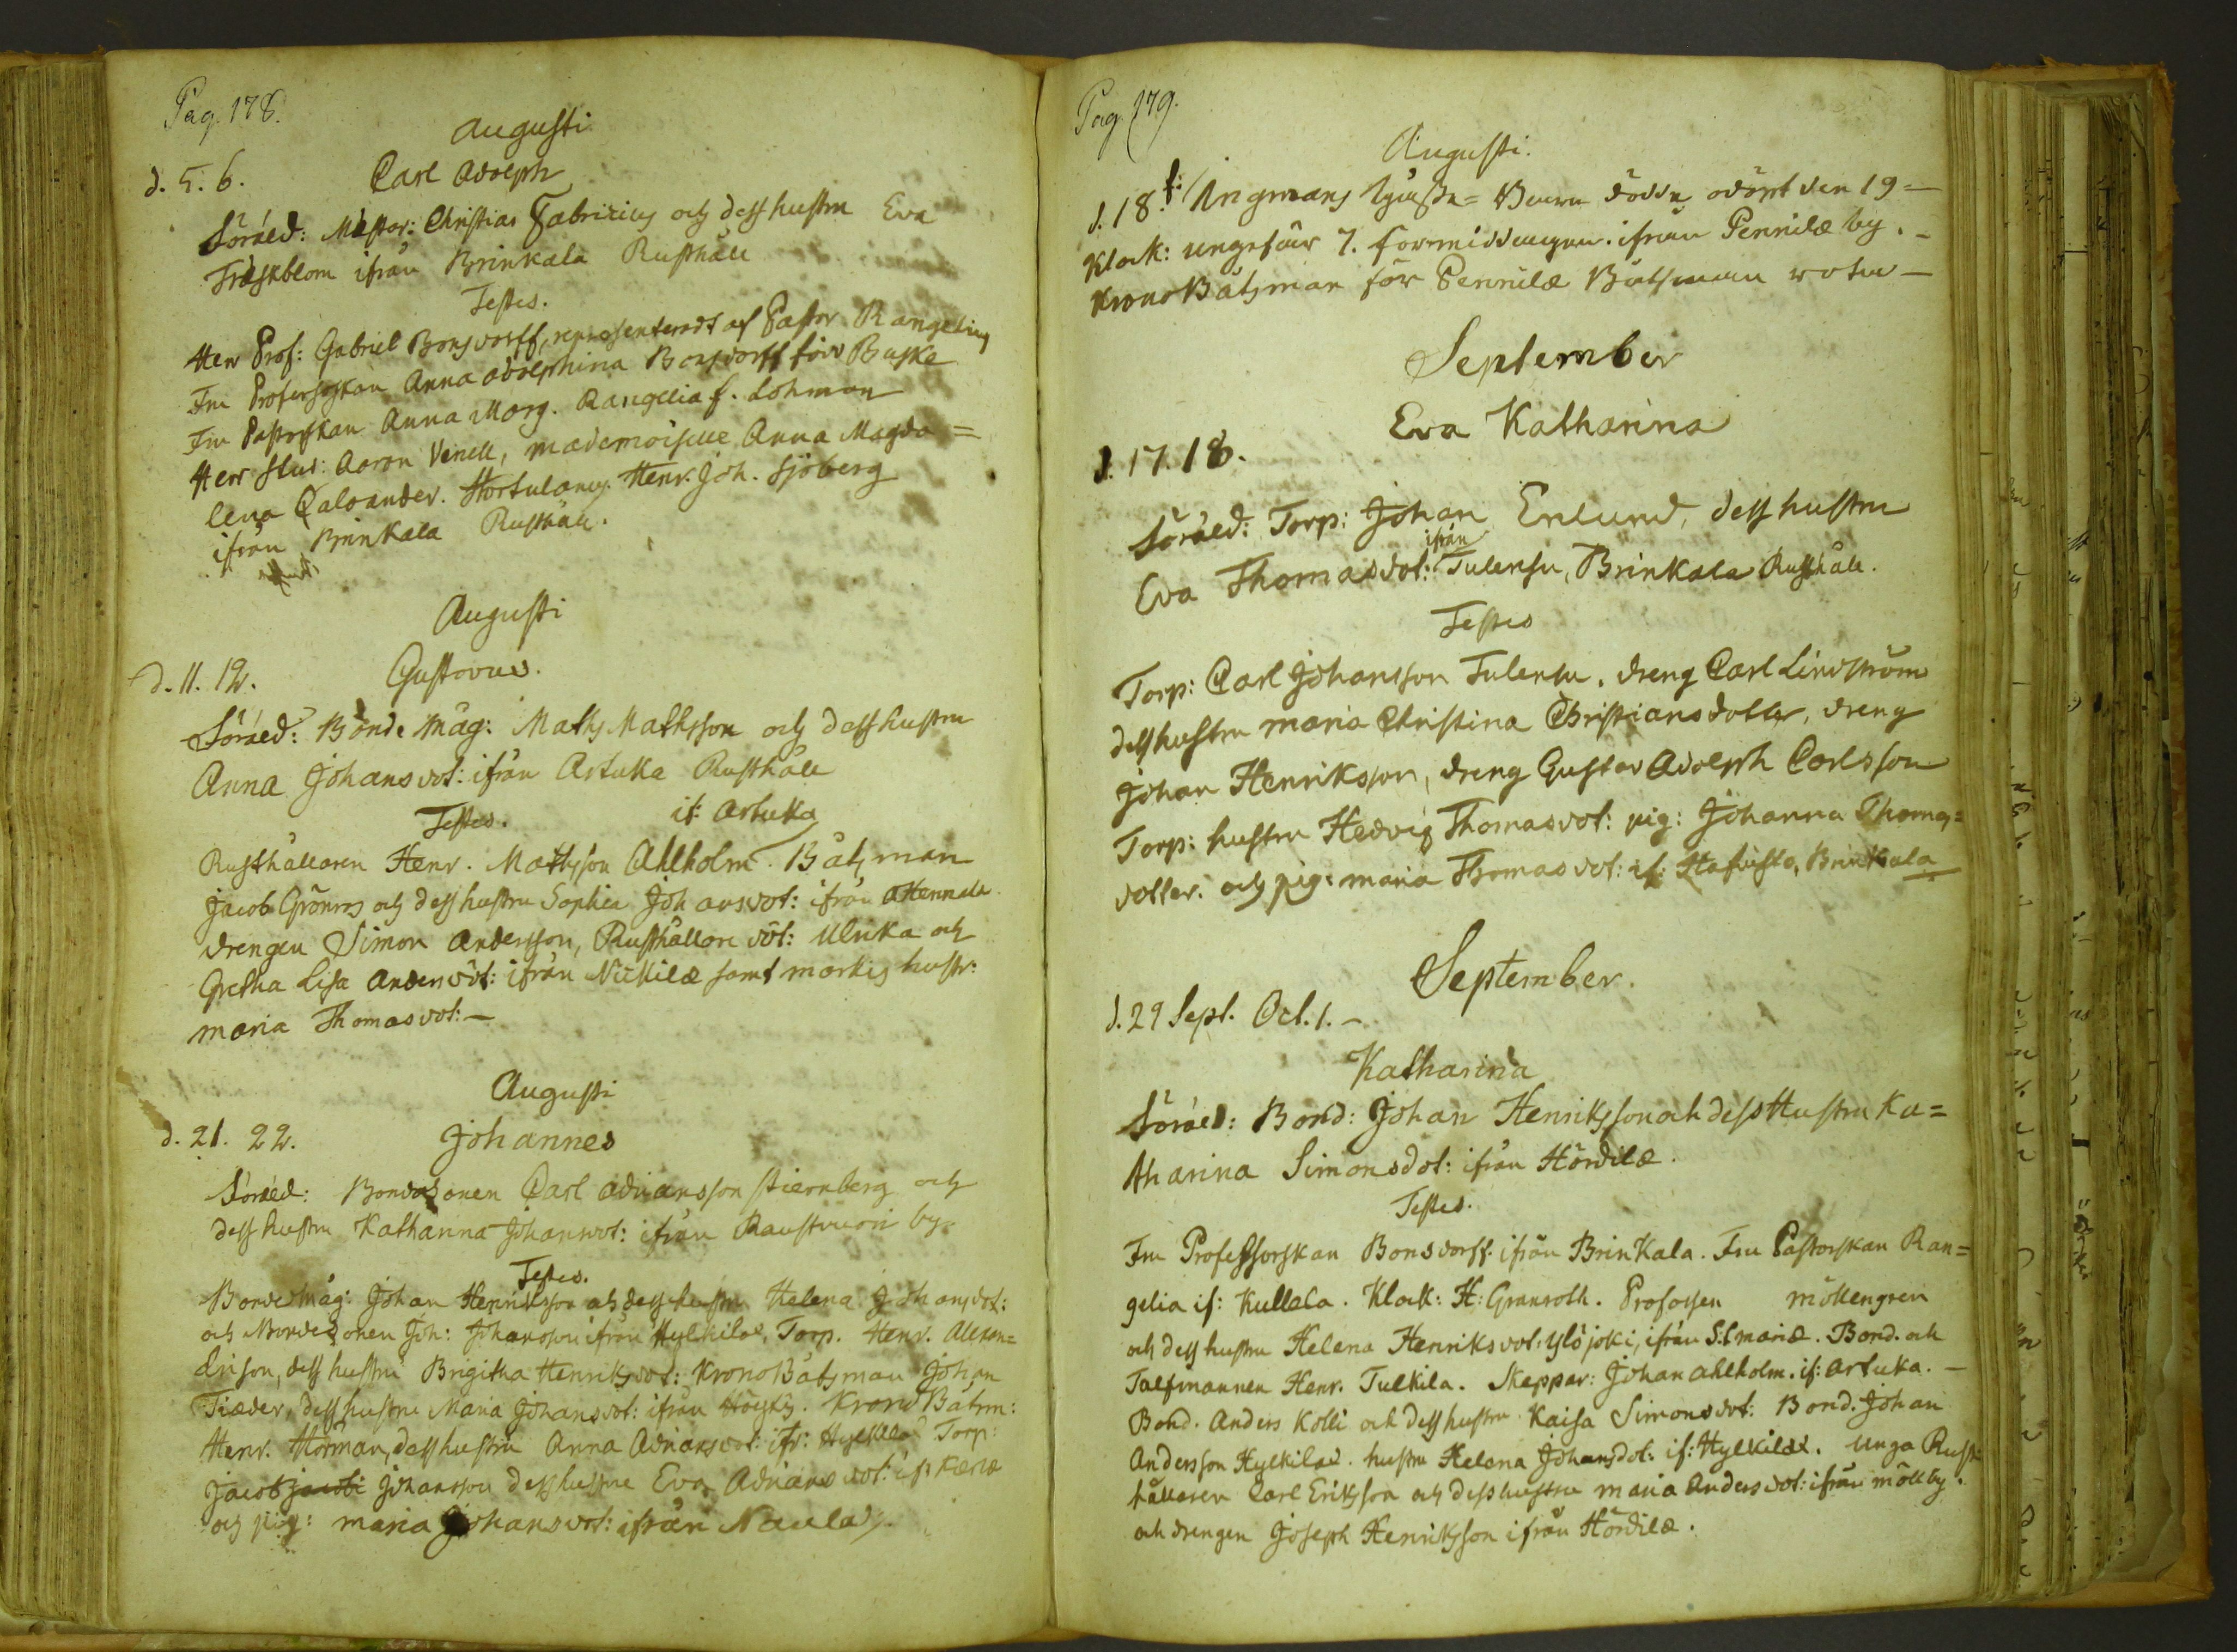 Pag. 178.
Augusti
d. 5. 6. Carl Adolph
Föräld: Mästar: Christian Fabricius och dess hustru Eva
Träskblom ifrån Brinkala Rusthåll
Testes.
Herr Prof: Gabriel Bonsdorff, representeradt af Pastor Rangelius
Fru Professorskan Anna Adolphina Bonsdorff född Buske
Fru Pastorskan Anna Marg. Rangelia f. Lohman
Herr Stud: Aaron Venell, mademoiselle Anna Magda=
lena Caloander. Hortulanus Henr. Joh. Sjöberg
ifrån Brinkala Rusthåll.
Augusti
d. 11. 12. Gustavus.
Föräld: Bonde Måg: Maths Mathsson och dess hustru
Anna Johansdot: ifrån Artuka Rusthåll
Testes. if: Artuka
Rusthållaren Henr. Mathsson Ahlholm. Båtsman
Jacob Grönros och dess hustru Sophia Johansdot: ifrån
drengen Simon Andersson, Rusthållare döt: Ulrika och
Gretha Lisa Andersdöt: ifrån Nickilæ samt hustr:
maria Thomasdot: –
Augusti
d. 21. 22. Johannes
Föräld: Bondasonen Carl Adriansson Stiernberg och
dess hustru Katharina Johansdot: ifrån Raustvuori by.
Testes.
Bonde Måg: Johan Henriksson och dess hustru Helena Johansdot:
och Bondesonen Joh: Johansson ifrån Hylkilæ, Torp. Henr. Alexan=
derson, dess hustru Brigitha Henriksdot: Krono Båtsman Johan
Fiæder, dess hustru Maria Johansdot: ifrån Krono Båtsm:
Henr. Hörman, dess hustru Anna Adriansdot: ifr: Hylkilæ Torp:
Jacob Jacobs Johansson dess hustru Eva Adriansdot: if: Kærlæ
och pig: maria Johansdot: ifrån Naula by.
Pag. 179.
Augusti.
d. 18. f: Ingmans Barn dödde, odöpt den 19 –
Klock: ungefär 7. formiddagen. ifrån Pennilæ by. –
Krono Båtsman för Pennilæ Båtsmans rotan –
September
Eva Katharina
d. 17. 18.
Föräld: Torp: Johan Enlund, dess hustru
ifrån
Eva Thomasdot: Tulensu, Brinkala Rusthåll.
Testes
Torp: Carl Johansson Tulensu, dreng Carl Lindström
dess hustru maria Christina Christiansdotter, dreng
Johan Henriksson, dreng Gustav Adolph Carlsson
Torp: hustru Hedvig Thomasdot: pig: Johanna Thomas=
dotter. och pig: maria Thomasdot: if: Brinkala
September.
d. 29 Sept. Oct. 1. –
Katharina
Föräld: Bond: Johan Henriksson och dess Hustru Ka=
tharina Simonsdot: ifrån Hördilæ.
Testes.
Fru Professorskan Bonsdorff ifrån Brinkala. Fru Pastorskan Ran=
gelia if: Kullala. Klock: H: Granroth. Profossen möllengren
och dess hustru Helena Henriksdot: Ylöjoki, ifrån S:t mariæ. Bond. och
Talfmannen Henr. Tulkila. Skeppar: Johan Ahlholm. if: Artuka. –
Bond. Anders Kolli och dess hustru Kaisa Simonsdot: Bond. Johan
Andersson Hylkilæ. hustru Helena Johansdot: if: Hylkilæ. Unga Rust
hållaren Carl Eriksson och dess hustru maria Andersdot: ifrån möllby.
och drengen Joseph Henriksson ifrån Hördilæ.